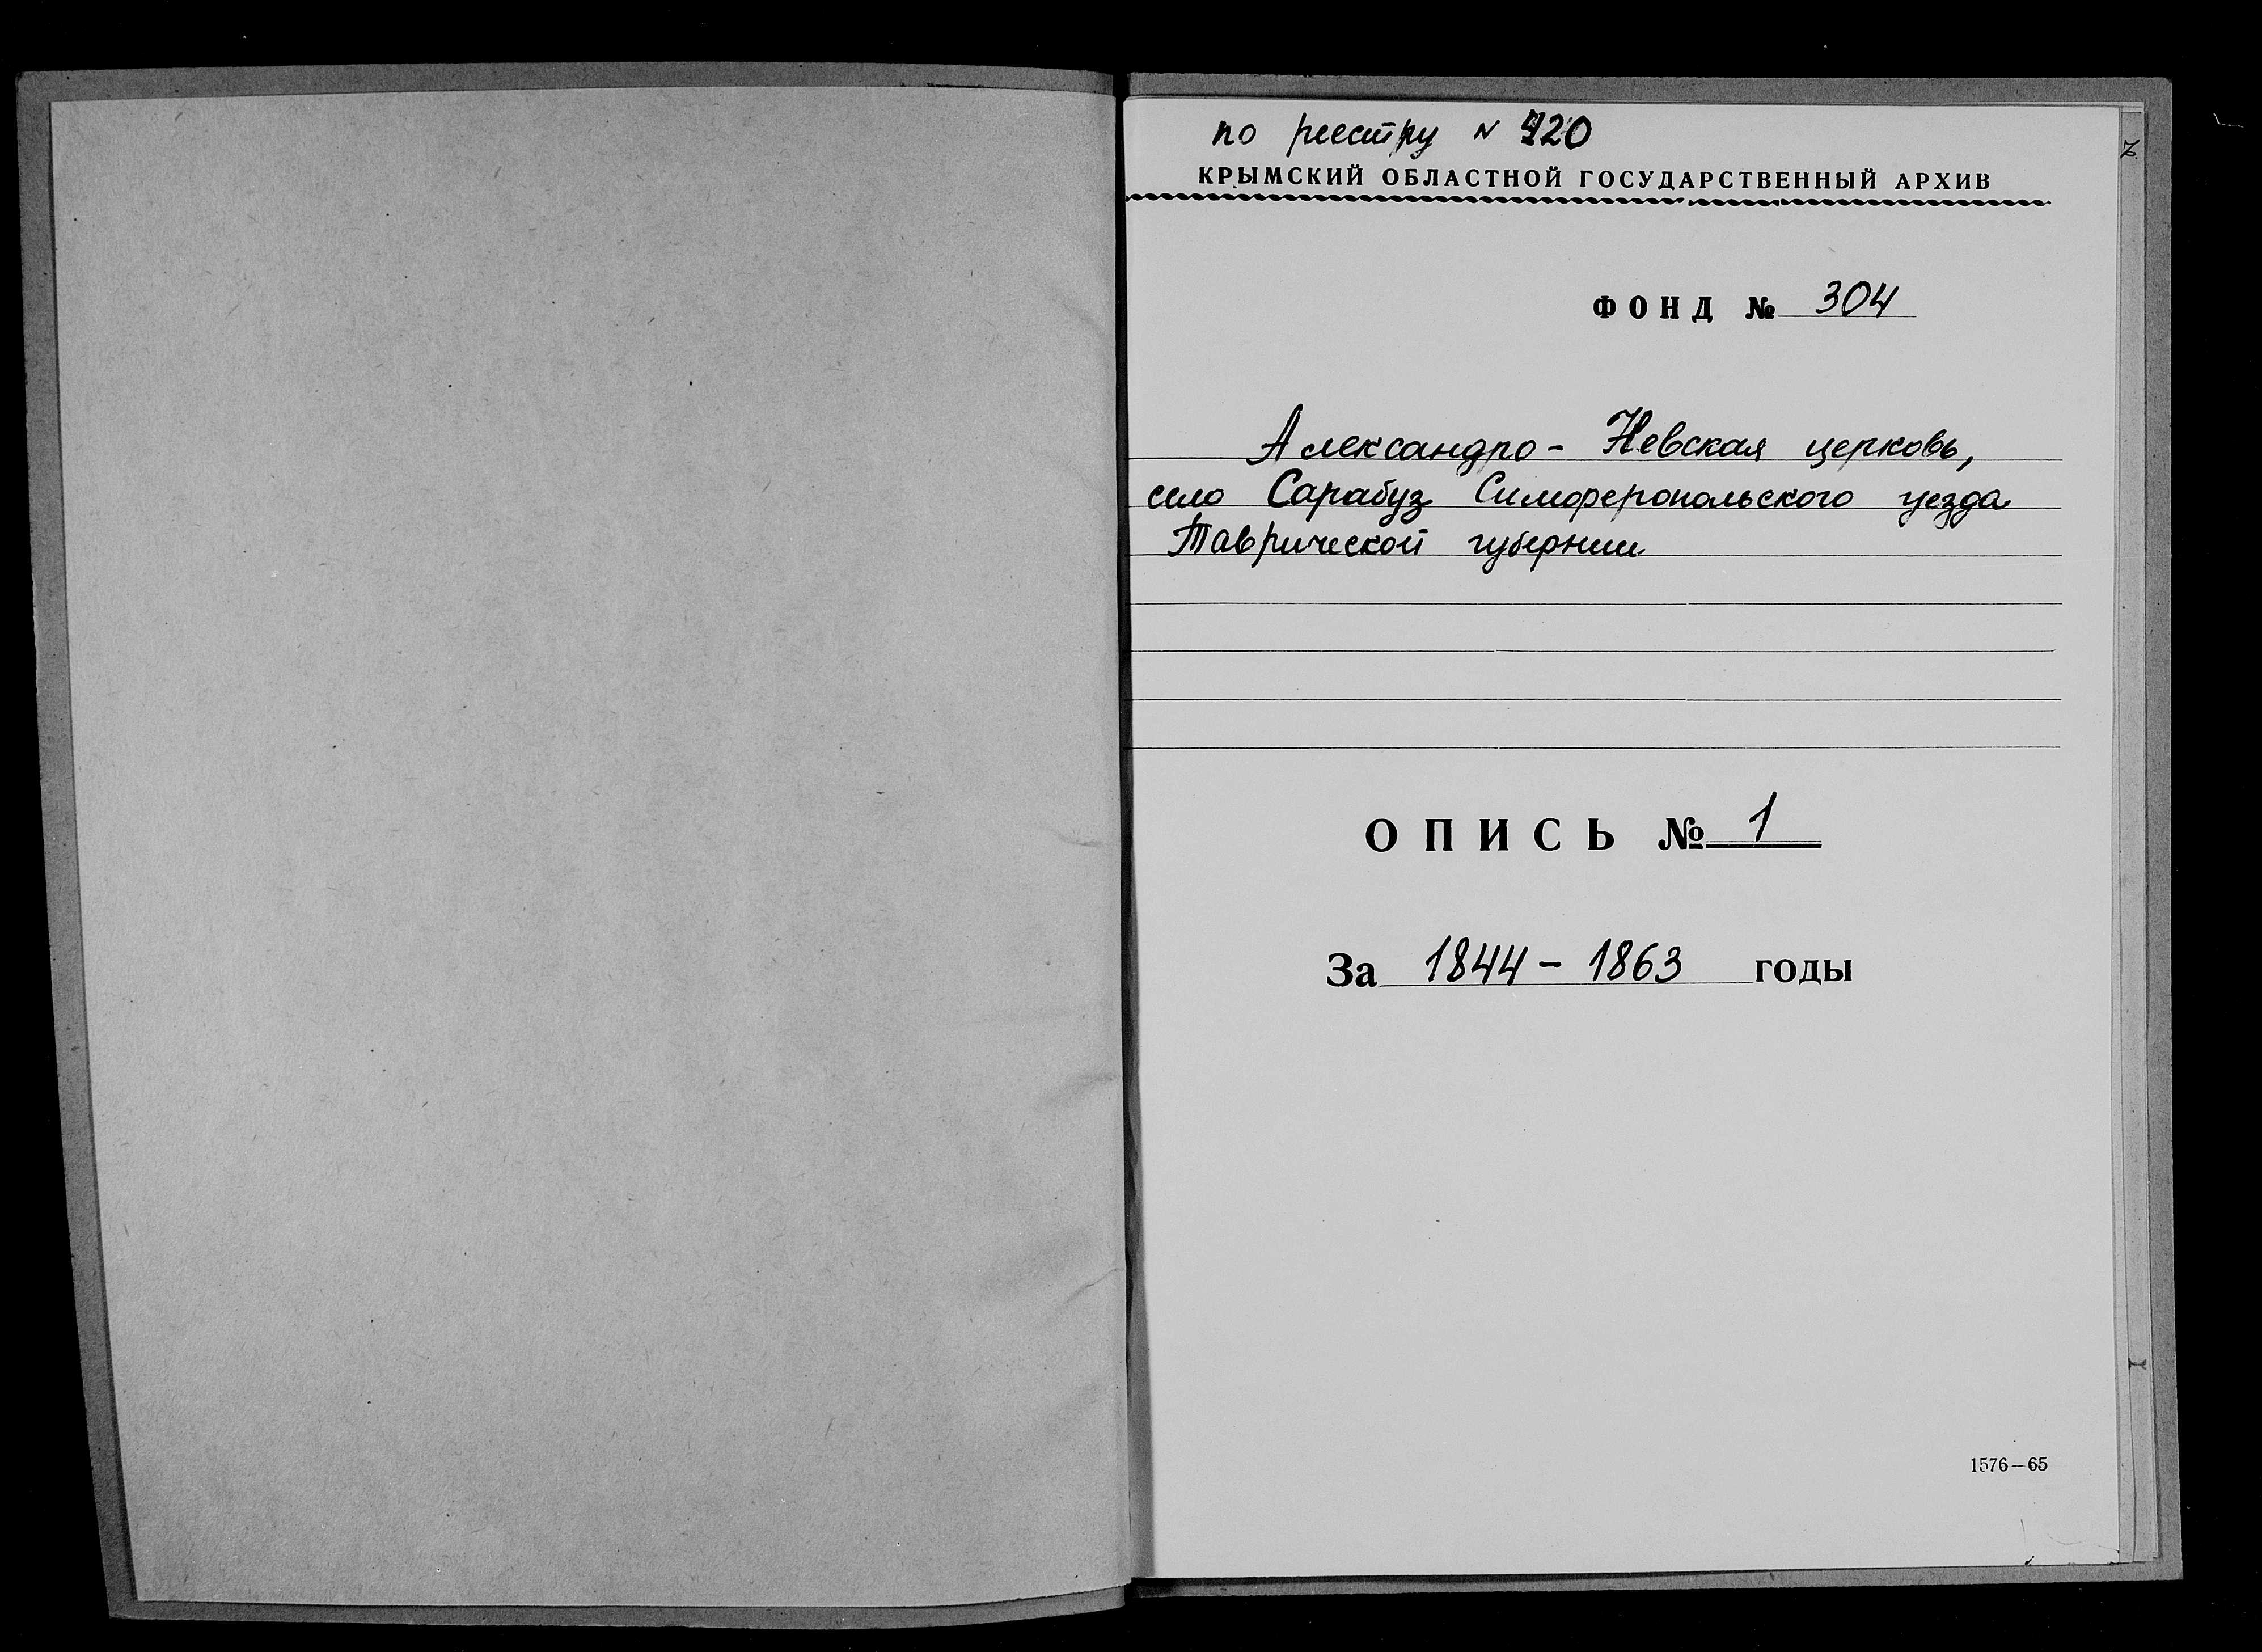 по реестру N 920
КРЫМСКИЙ ОБЛАСТНОЙ ГОСУДАРСТВЕННЫЙ АРХИВ
ФОНД № 304
Александро- Невская церковь,
село Сарабуз Симферопольского уезда
Таврической губернии
ОПИСЬ № 1
За 1844 - 1863 годы
1576-65